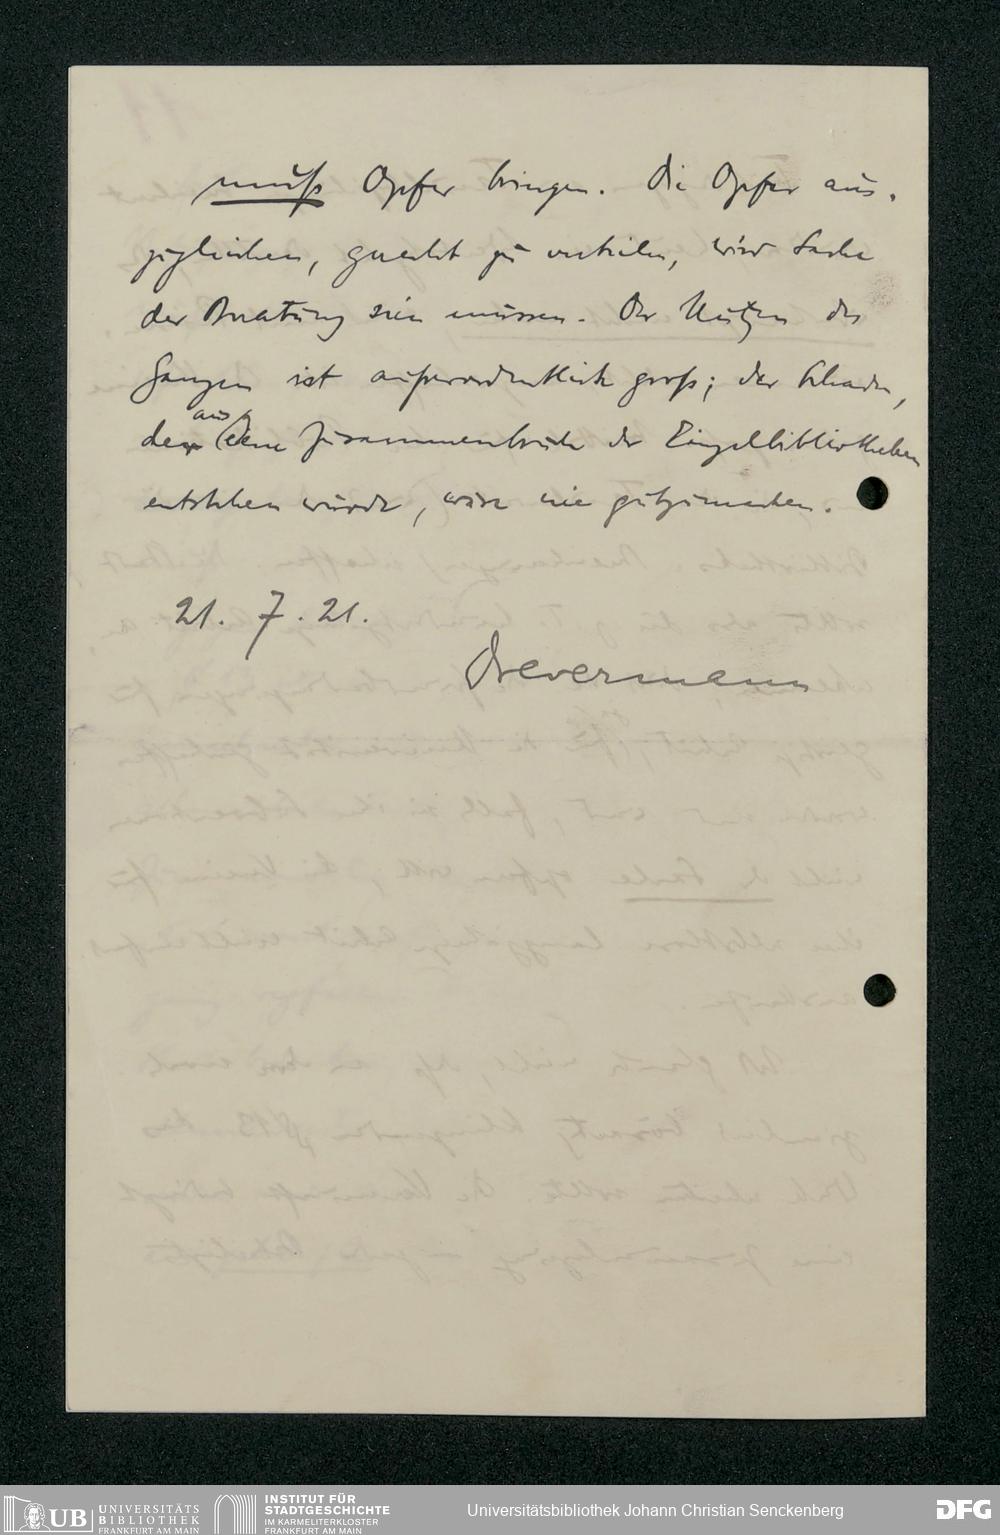 muß Opfer bringen. Die Opfer aus-
zugleichen, gerecht zu verteilen, wird Sache
der Beratung sein müssen. Der Nutzen des
Ganzen ist außerordentlich groß; der Schaden,
der aus dem Zusammenbruch der Einzelbibliotheken
entstehen würde, wäre nie gutzumachen.
21. 7. 21.
Drevermann
UB UNIVERSITÄTS
BIBLIOTHEK
FRANKFURT AM MAIN
INSTITUT FÜR
STADTGESCHICHTE
IM KARMELITERKLOSTER
FRANKFURT AM MAIN
Universitätsbibliothek Johann Christian Senckenberg
DFG